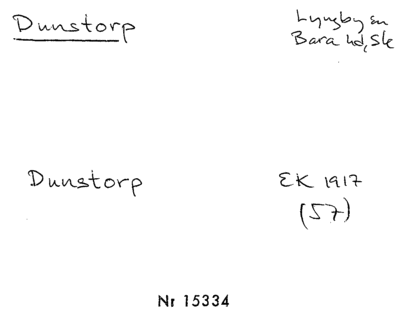 Dunstorp
Lyngby sn
Bara hd, Sk
Dunstorp
EK 1917
(57)
Nr 15334